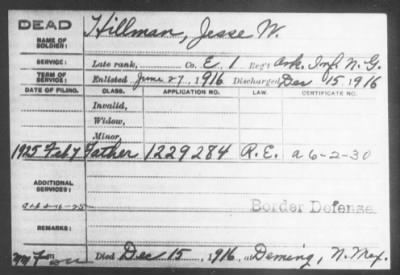 DEAD
NAME OF SOLDIER: Hillman, Jesse W.
SERVICE: Late rank, Co. E. 1 Reg't Ark. Inf. N. G.
TERM OF SERVICE: Enlisted June 27, 1916 Discharged Dec 15 1916
DATE OF FILING. CLASS. APPLICATION NO. LAW. CERTIFICATE NO.
Invalid,
Widow,
Minor,
1925 Feb 7 Father 1229284 R.E. a 6-2-30
ADDITIONAL SERVICES:
Border Defense
REMARKS:
Died Dec 15, 1916, at Deming, N. Mex.